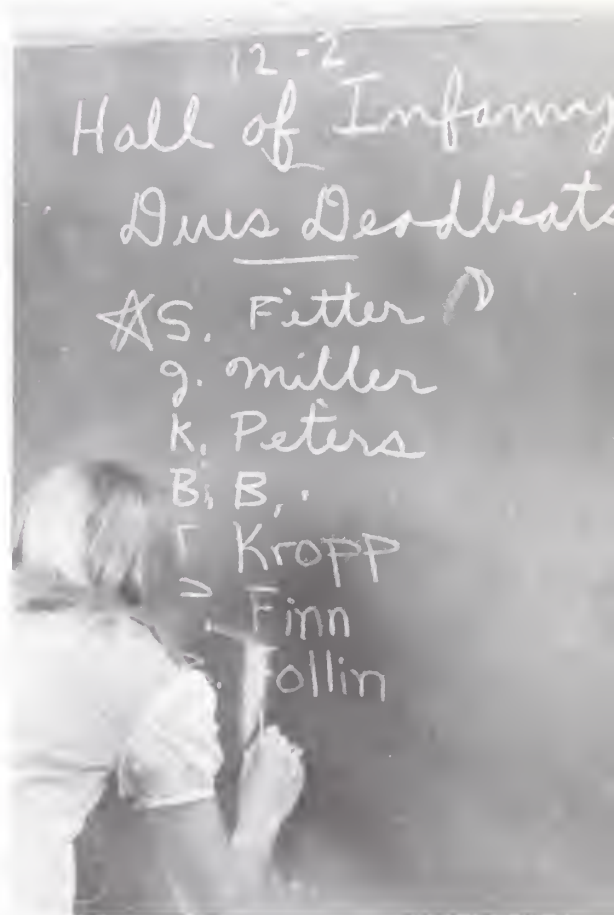 12-2
Hall of Infamy
Dues Deadbeats
S. Fitter
g. miller
K. Peters
B. B.
Kropp
Finn
ollin